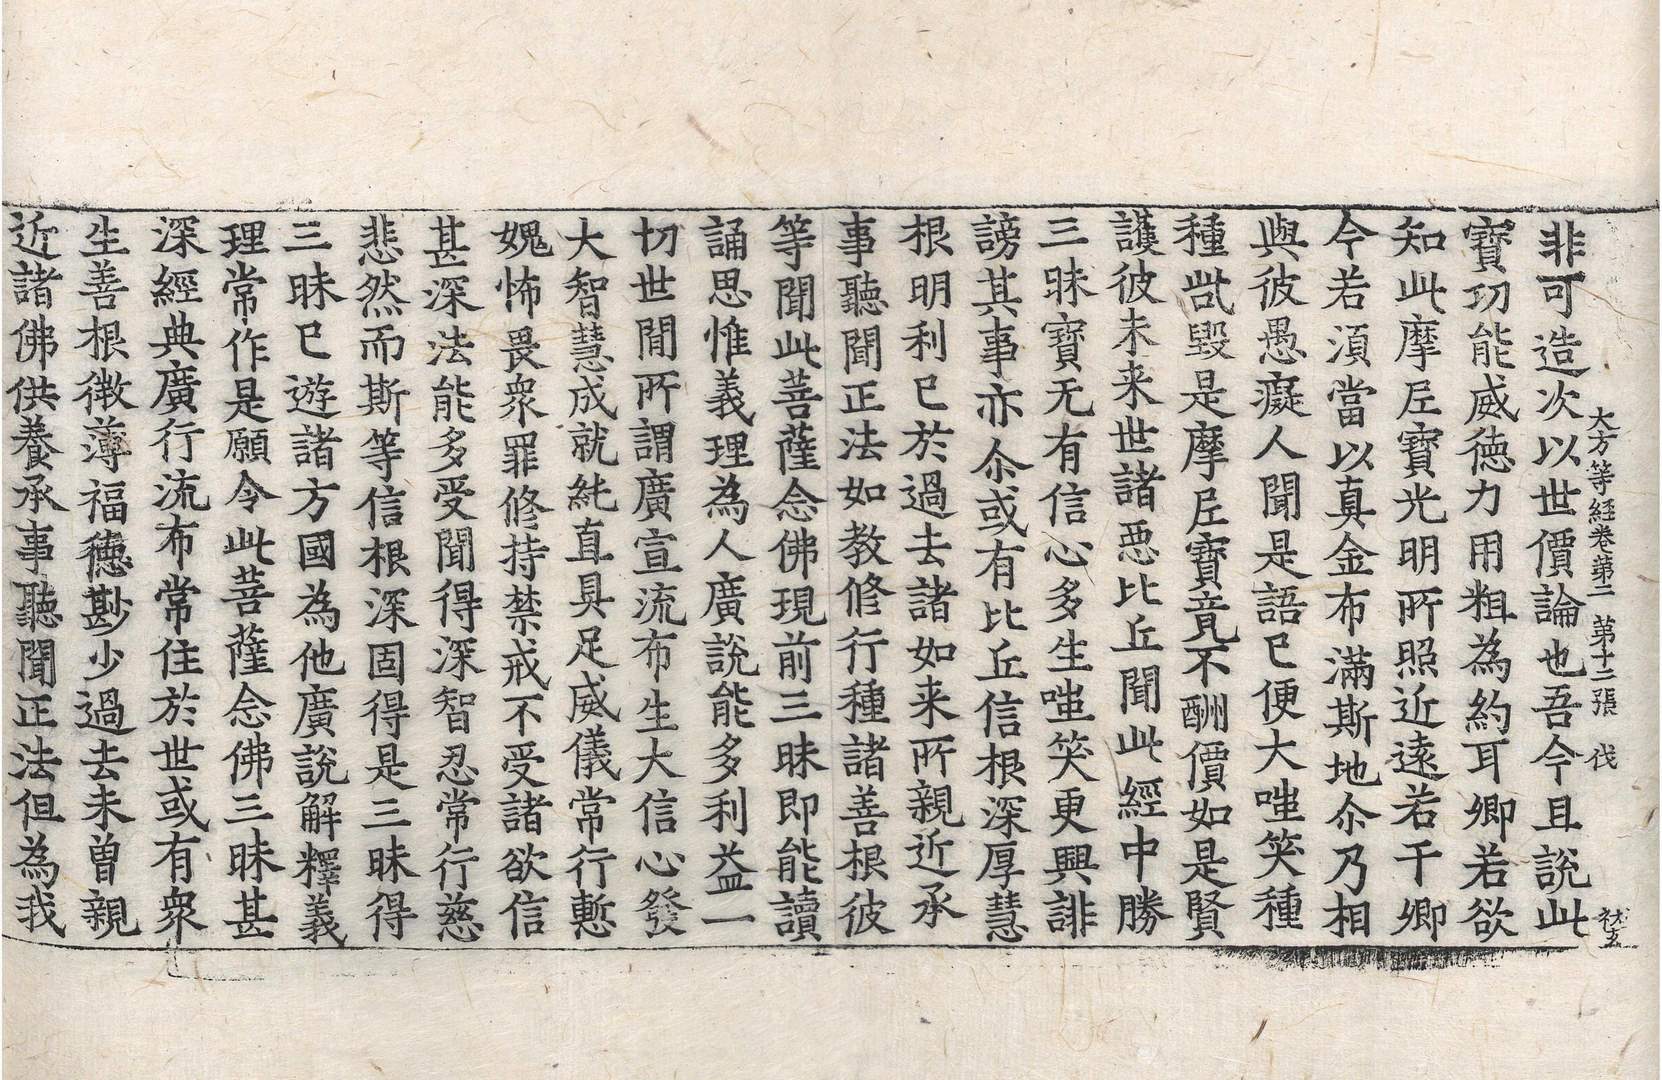 大方等経卷第二　第十二張　伐
非可造次以世價論也吾今且說此
寶㓛能威德力用粗為約耳卿若欲
知此摩尼寶光明所照近遠若干卿
今若湏當以真金布滿斯地尒乃相
與彼愚癡人聞是語已便大嗤笑種
種呰毀是摩尼寶竟不酬價如是賢
護彼未来世諸惡比丘聞此經中勝
三昧寶无有信心多生嗤笑更興誹
謗其事亦尒或有比丘信根深厚慧
根明利已於過去諸如来所親近承
事聽聞正法如教修行種諸善根彼
等聞此菩薩念佛現前三昧即能讀
誦思惟義理為人廣說能多利益一
切世間所謂廣宣流布生大信心發
大智慧成就純直具足威儀常行慙
媿怖畏衆罪修持禁戒不受諸欲信
甚深法能多受聞得深智忍常行慈
悲然而斯等信根深固得是三昧得
三昧已遊諸方國為他廣說解釋義
理常作是願令此菩薩念佛三昧甚
深經典廣行流布常住於世或有衆
生善根微薄福德尠少過去未曾親
近諸佛供養承事聽聞正法但為我